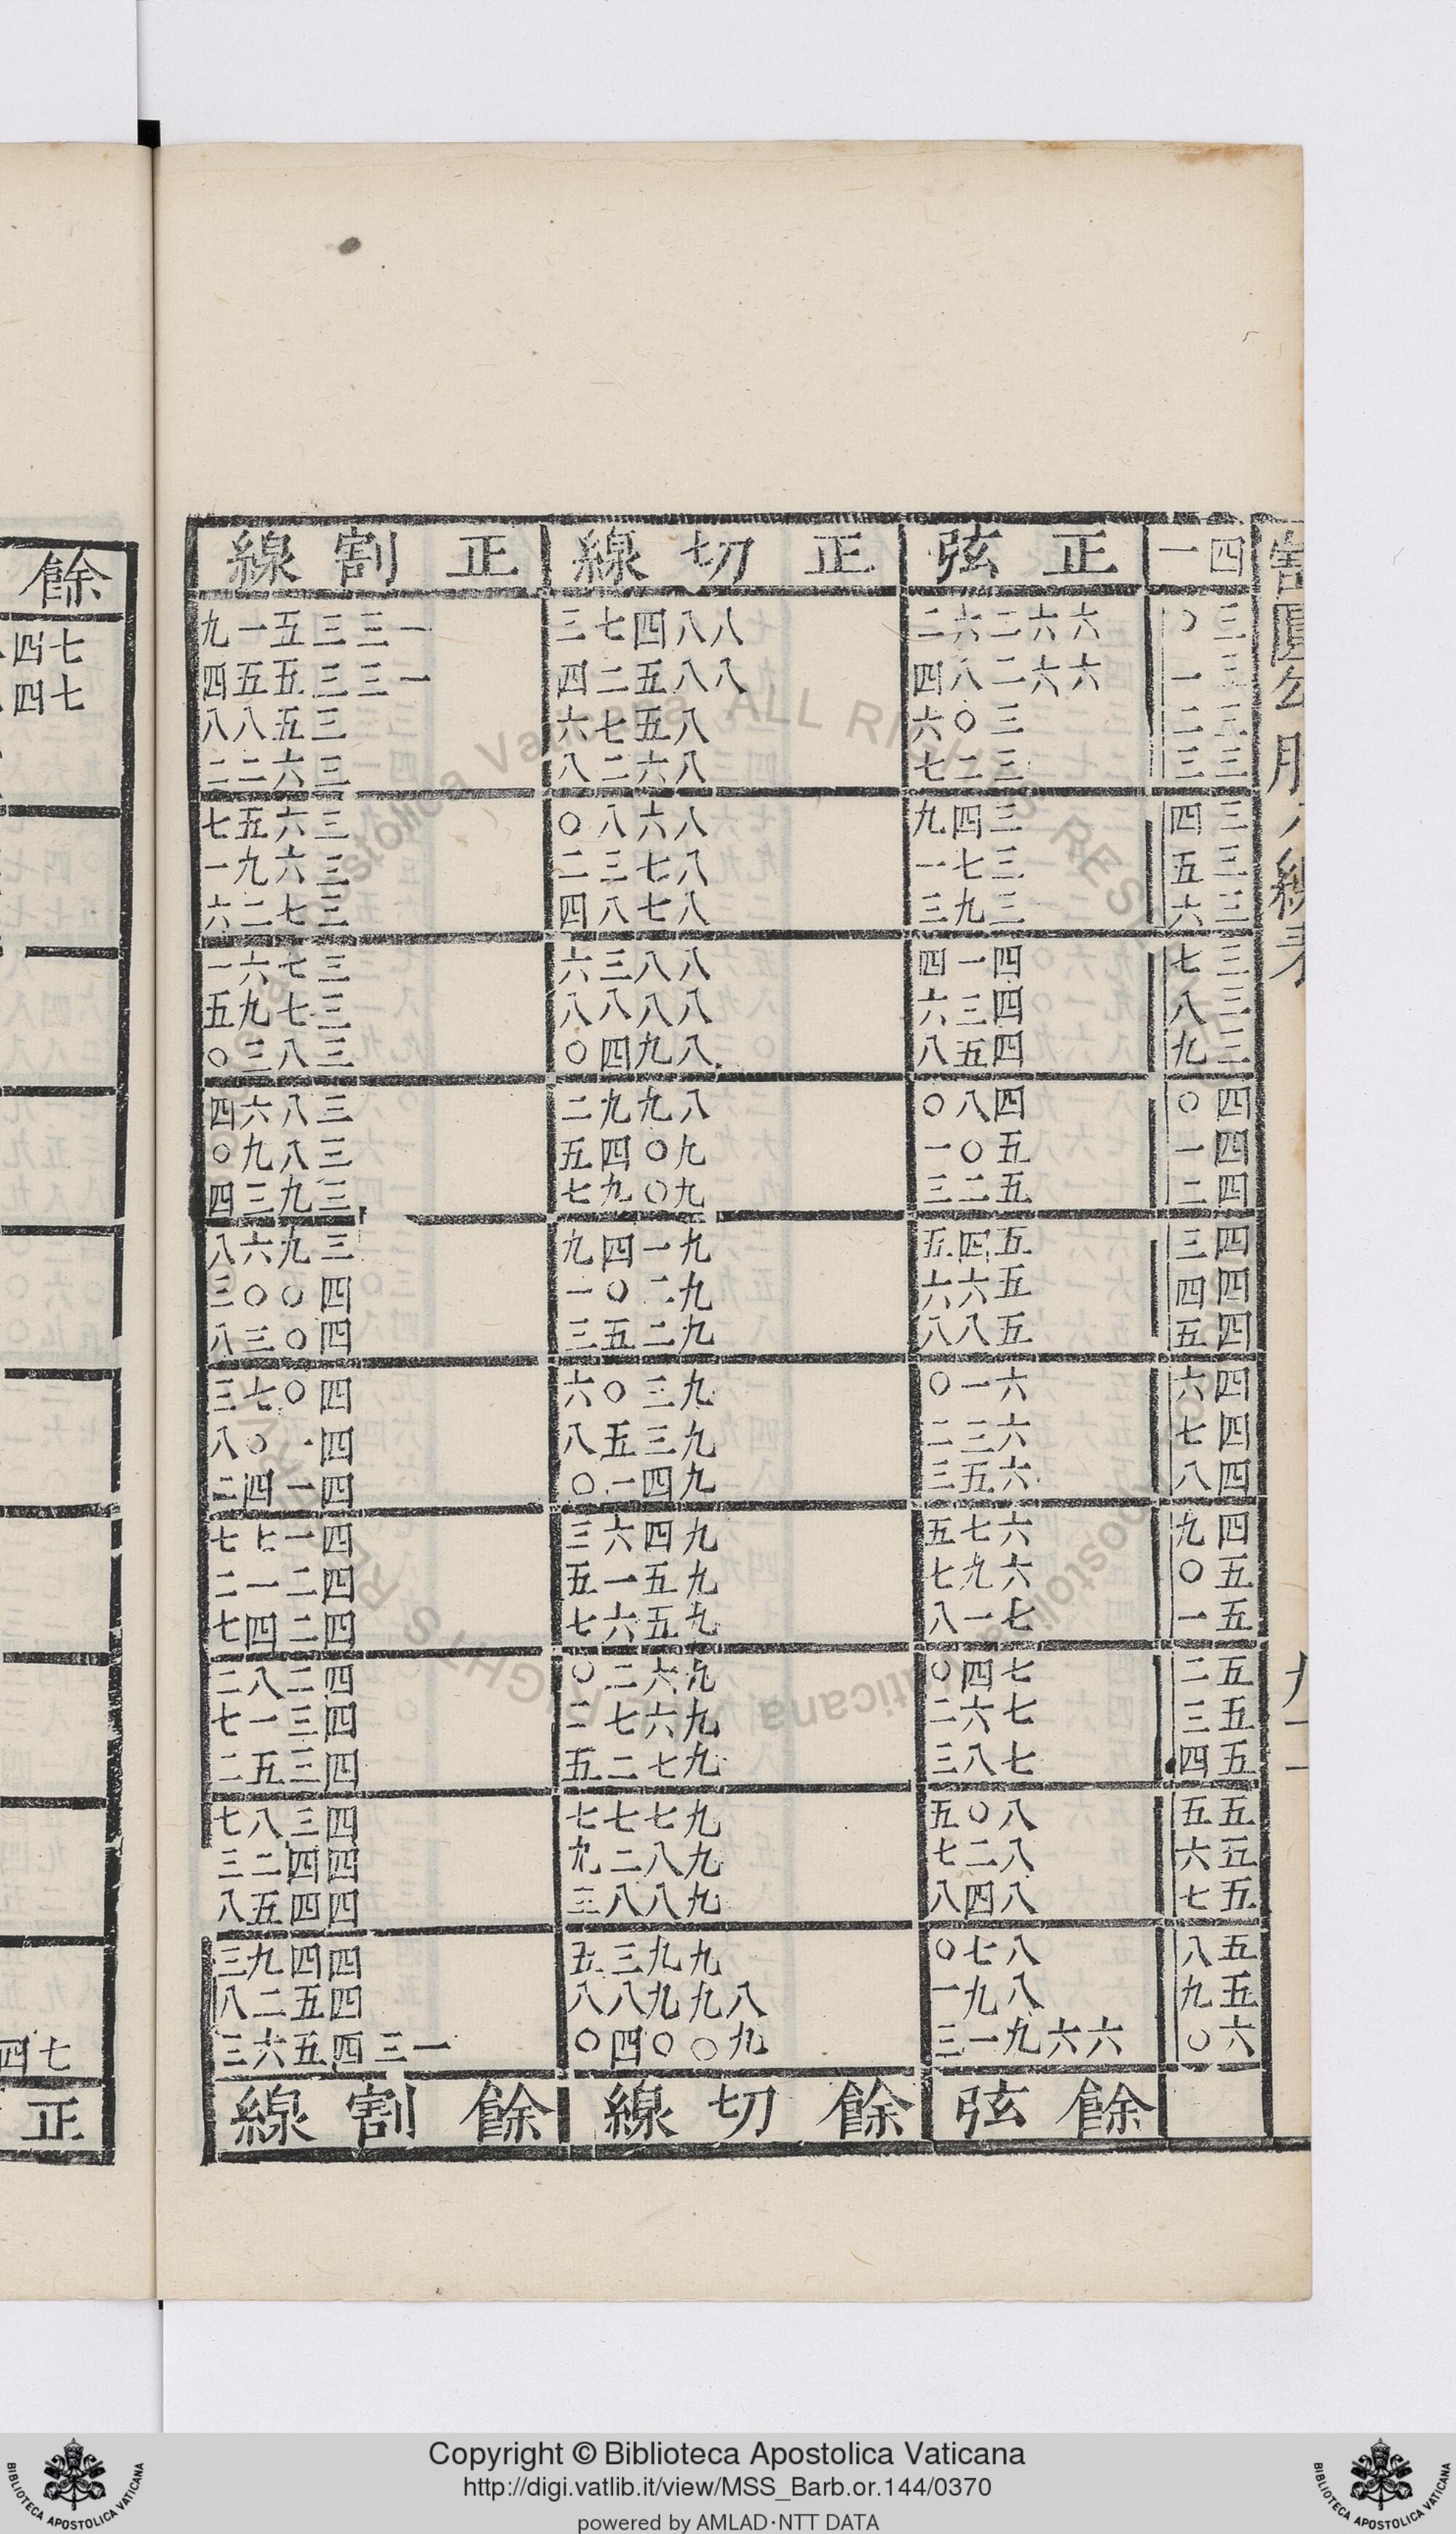 割圓勾股八線表
四一 正弦 正切線 正割線
三〇 六六二六二 八八四七三 一三三五一九
三一 六六二八四 八八五二四 一三三五五四
三二 三〇六 八五七六 三五八八
三三 三二七 八六二八 三六二二
三四 三四九 八六八〇 三六五七
三五 三七一 八七三二 三六九一
三六 三九三 八七八四 三七二六
三七 四一四 八八三六 三七六一
三八 四三六 八八八八 三七九五
三九 四五八 八九四〇 三八三〇
四〇 四八〇 八九九二 三八六四
四一 五〇一 九〇四五 三八九〇
四二 五二三 九〇九七 三九三四
四三 五四五 九一四九 三九六八
四四 五六六 九二〇一 四〇〇三
四五 五八八 九二五三 四〇三八
四六 六一〇 九三〇六 四〇七三
四七 六三二 九三五八 四一〇八
四八 六五三 九四一〇 四一四二
四九 六七五 九四六三 四一七七
五〇 六九七 九五一五 四二一二
五一 七一八 九五六七 四二四七
五二 七四〇 九六二〇 四二八二
五三 七六二 九六七二 四三一七
五四 七八三 九七二五 四三五二
五五 八〇五 九七七七 四三八七
五六 八二七 九八二九 四四二三
五七 八四八 九八八三 四四五八
五八 八七〇 九九三五 四四九三
五九 八九一 八九九八八 四五二八
六〇 六六九一三 九〇〇四〇 一三四五六三
餘弦 餘切線 餘割線
餘
七四
七四
七四
正
Copyright © Biblioteca Apostolica Vaticana
http://digi.vatlib.it/view/MSS_Barb.or.144/0370
powered by AMLAD·NTT DATA
BIBLIOTECA APOSTOLICA VATICANA
BIBLIOTECA APOSTOLICA VATICANA